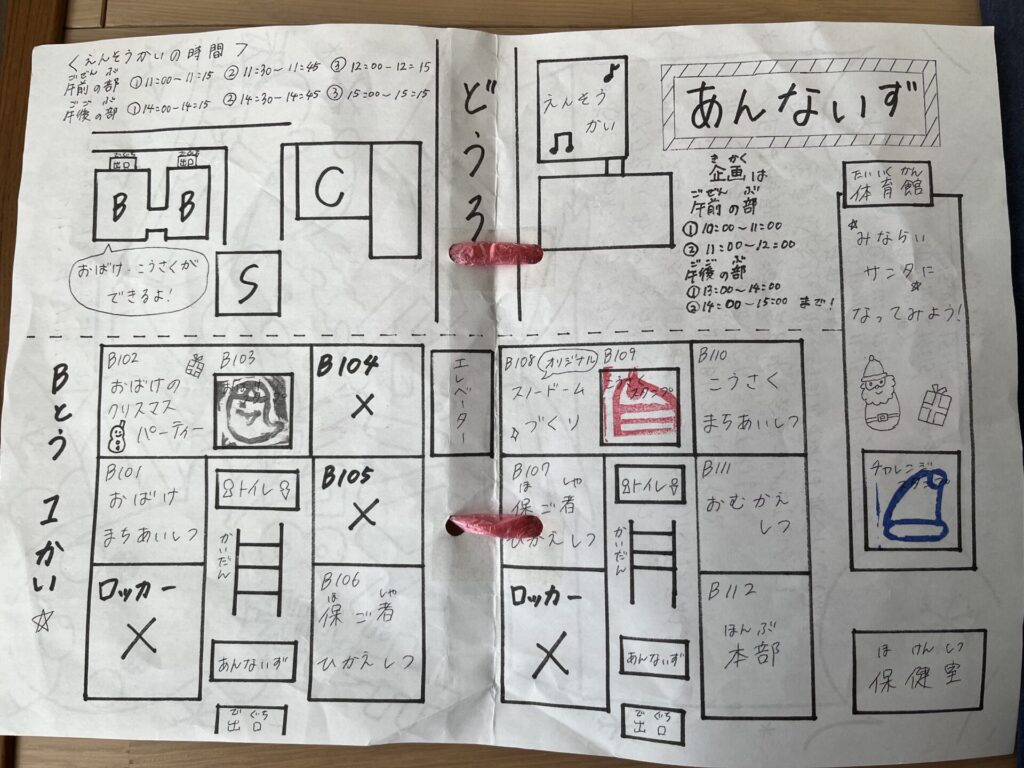 <えんそうかいの時間>
ごぜん ぶ
午前の部 ①11:00~11:15 ②11:30~11:45 ③12:00-12:15
ごご ぶ
午後の部 ①14:00-14:15 ②14:30-14:45 ③15:00~15:15
どうろ
えんそう
かい
あんないず
き かく
企画は
ごぜん ぶ
午前の部
①10:00~11:00
②11:00~12:00
ごご ぶ
午後の部
①13:00~14:00
②14:00~15:00 まで!
出口
出口
B
B
C
S
おばけ・こうさくが
できるよ!
たいいくかん
体育館
☆みならい
サンタに
☆
なってみよう!
チャレンジ
Bとう 1かい☆
B102
おばけの
クリスマス
パーティー
B103
B104
×
エレベーター
B108 オリジナル
スノードーム
☆づくり
B109
こうさく
スタンプ
B110
こうさく
まちあいしつ
B101
おばけ
まちあいしつ
トイレ
B105
×
B107
ほ しゃ
保ご者
ひかえしつ
トイレ
B111
おむかえ
しつ
ロッカー
×
かいだん
B106
ほ しゃ
保ご者
ひかえしつ
ロッカー
×
かいだん
B112
ほんぶ
本部
あんないず
あんないず
でぐち
出口
でぐち
出口
ほ けん しつ
保健室